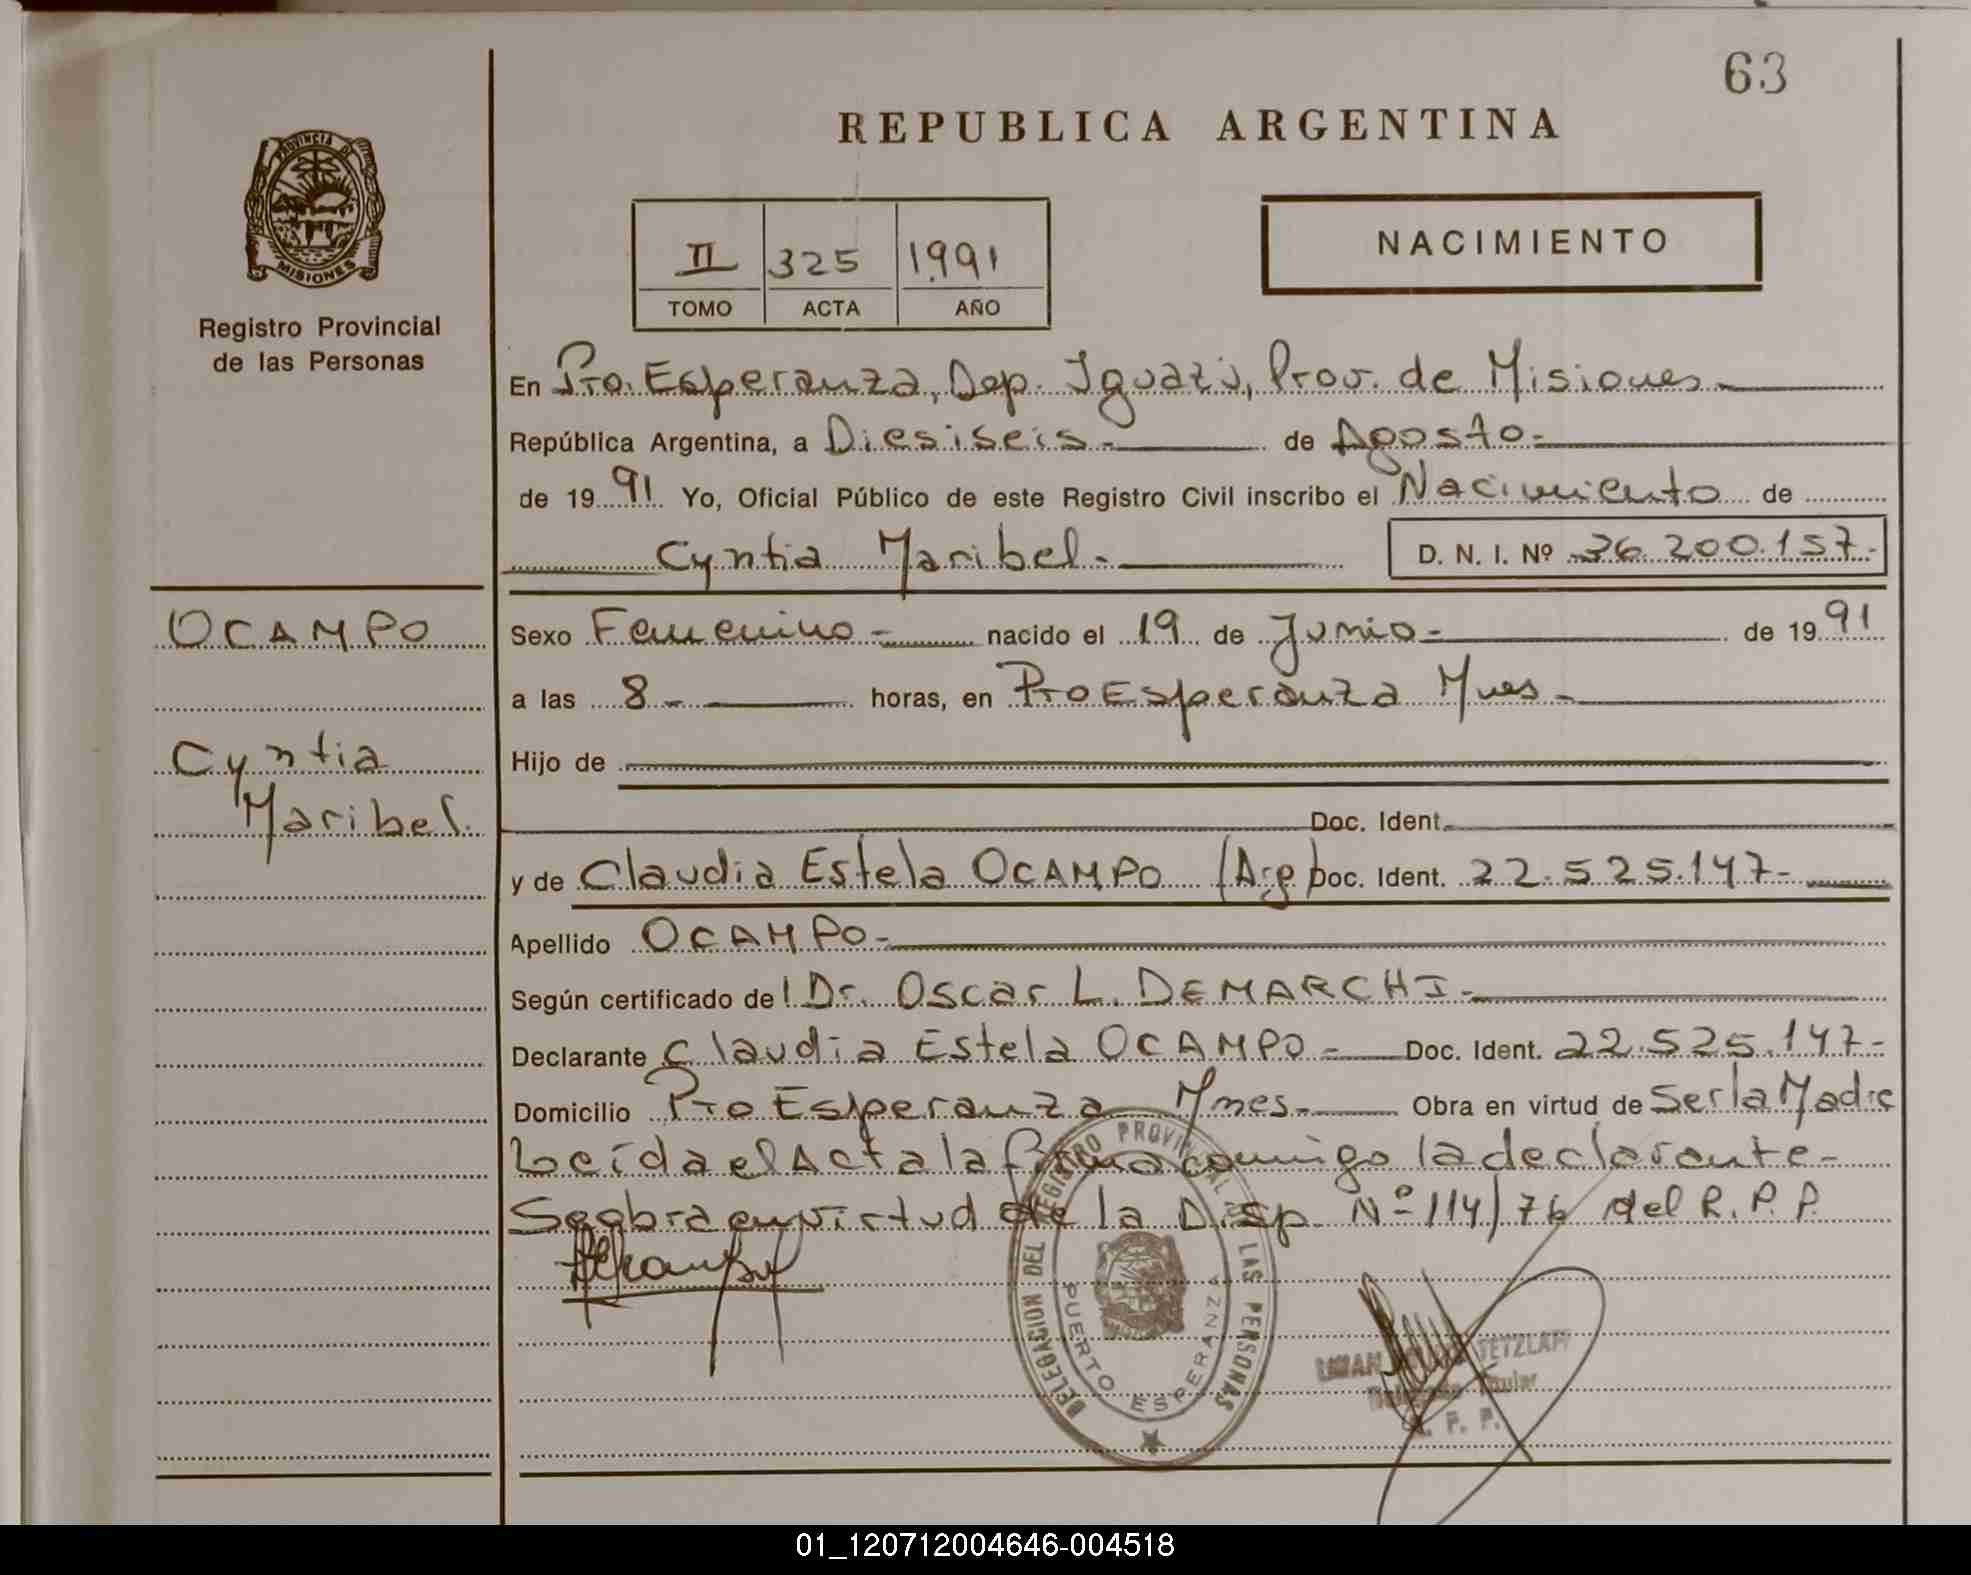 63
REPUBLICA ARGENTINA
PROVINCIA DE
MISIONES
Registro Provincial
de las Personas
II 325 1991
TOMO ACTA AÑO
NACIMIENTO
En Pto. Esperanza, Dep. Iguazú, Prov. de Misiones
República Argentina, a Diesiseis.- de Agosto.-
de 1991 Yo, Oficial Público de este Registro Civil inscribo el Nacimiento de
Cyntia Maribel.- D. N. I. Nº 36.200.157.-
OCAMPO
Cyntia
Maribel.
Sexo Femenino - nacido el 19 de Junio - de 1991
a las 8 - horas, en Pto Esperanza Mnes -
Hijo de
Doc. Ident.
y de Claudia Estela OCAMPO (Arg) Doc. Ident. 22.525.147-
Apellido OCAMPO-
Según certificado del Dr. Oscar L. DEMARCHI-
Declarante Claudia Estela OCAMPO - Doc. Ident. 22.525.147-
Domicilio Pto Esperanza Mnes.- Obra en virtud de Ser la Madre
Leída el Acta la firma conmigo la declarante-
Se obra en virtud de la Disp. Nº 114/76 del R. P. P.
DELEGACION DEL REGISTRO PROVINCIAL DE LAS PERSONAS
PUERTO ESPERANZA
TETZLAFF
Titular
P. P.
01_120712004646-004518